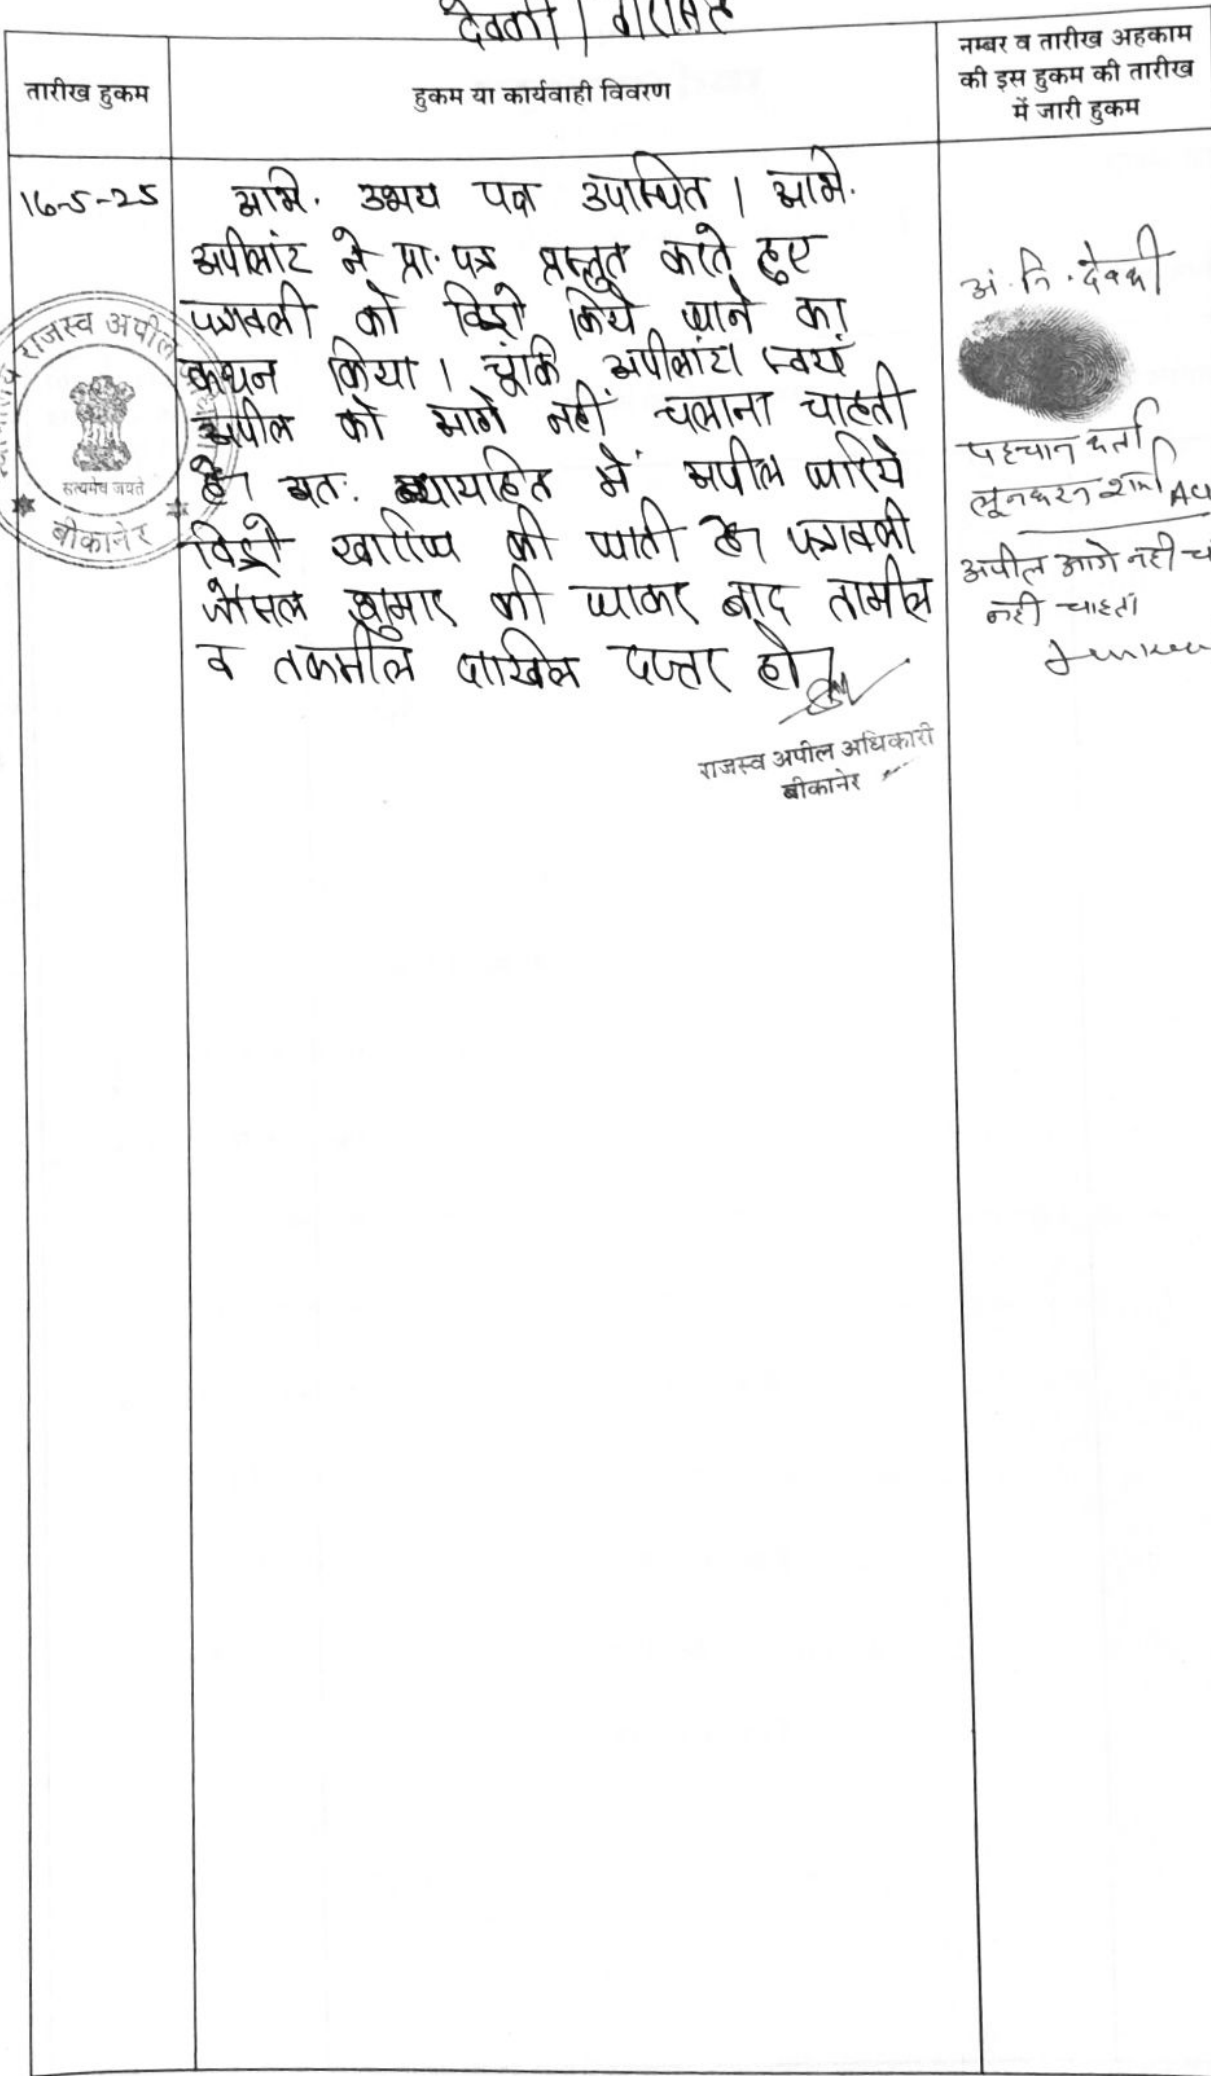 देवकी /
तारीख हुकम
हुकम या कार्यवाही विवरण
नम्बर व तारीख अहकाम
की इस हुकम की तारीख
में जारी हुकम
16-5-25
अभि. उभय पक्ष उपस्थित । अभि.
अपीलांट ने प्रा. पत्र प्रस्तुत करते हुए
पत्रावली को विड्रो किये जाने का
कथन किया । चूंकि अपीलांटा स्वयं
अपील को आगे नहीं चलाना चाहती
है। अतः न्यायहित में अपील जरिये
विड्रो खारिज की जाती है। पत्रावली
फैसल शुमार की जाकर बाद तामील
व तकमील दाखिल दफ्तर हो।
राजस्व अपील अधिकारी
बीकानेर
राजस्व अपील
सत्यमेव जयते
बीकानेर
अं. नि. देवकी
पहचान कर्ता
लूनकरन शर्मा
अपील आगे नही
नही चाहता